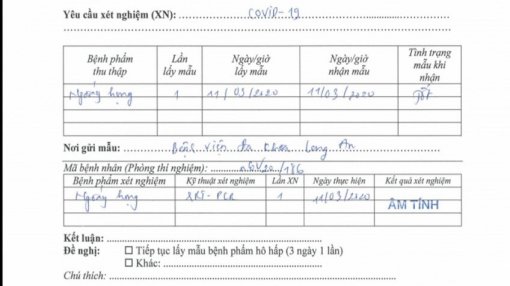 Yêu cầu xét nghiệm (XN): COVID-19
Bệnh phẩm thu thập Lần lấy mẫu Ngày/giờ lấy mẫu Ngày/giờ nhận mẫu Tình trạng mẫu khi nhận
Ngoáy họng 1 11/03/2020 11/03/2020 Tốt
Nơi gửi mẫu: Bệnh viện Đa khoa Long An
Mã bệnh nhân (Phòng thí nghiệm): /186
Bệnh phẩm xét nghiệm Kỹ thuật xét nghiệm Lần XN Ngày thực hiện Kết quả xét nghiệm
Ngoáy họng RRT-PCR 1 11/03/2020 ÂM TÍNH
Kết luận:
Đề nghị: ☐ Tiếp tục lấy mẫu bệnh phẩm hô hấp (3 ngày 1 lần)
☐ Khác:
Chú thích: